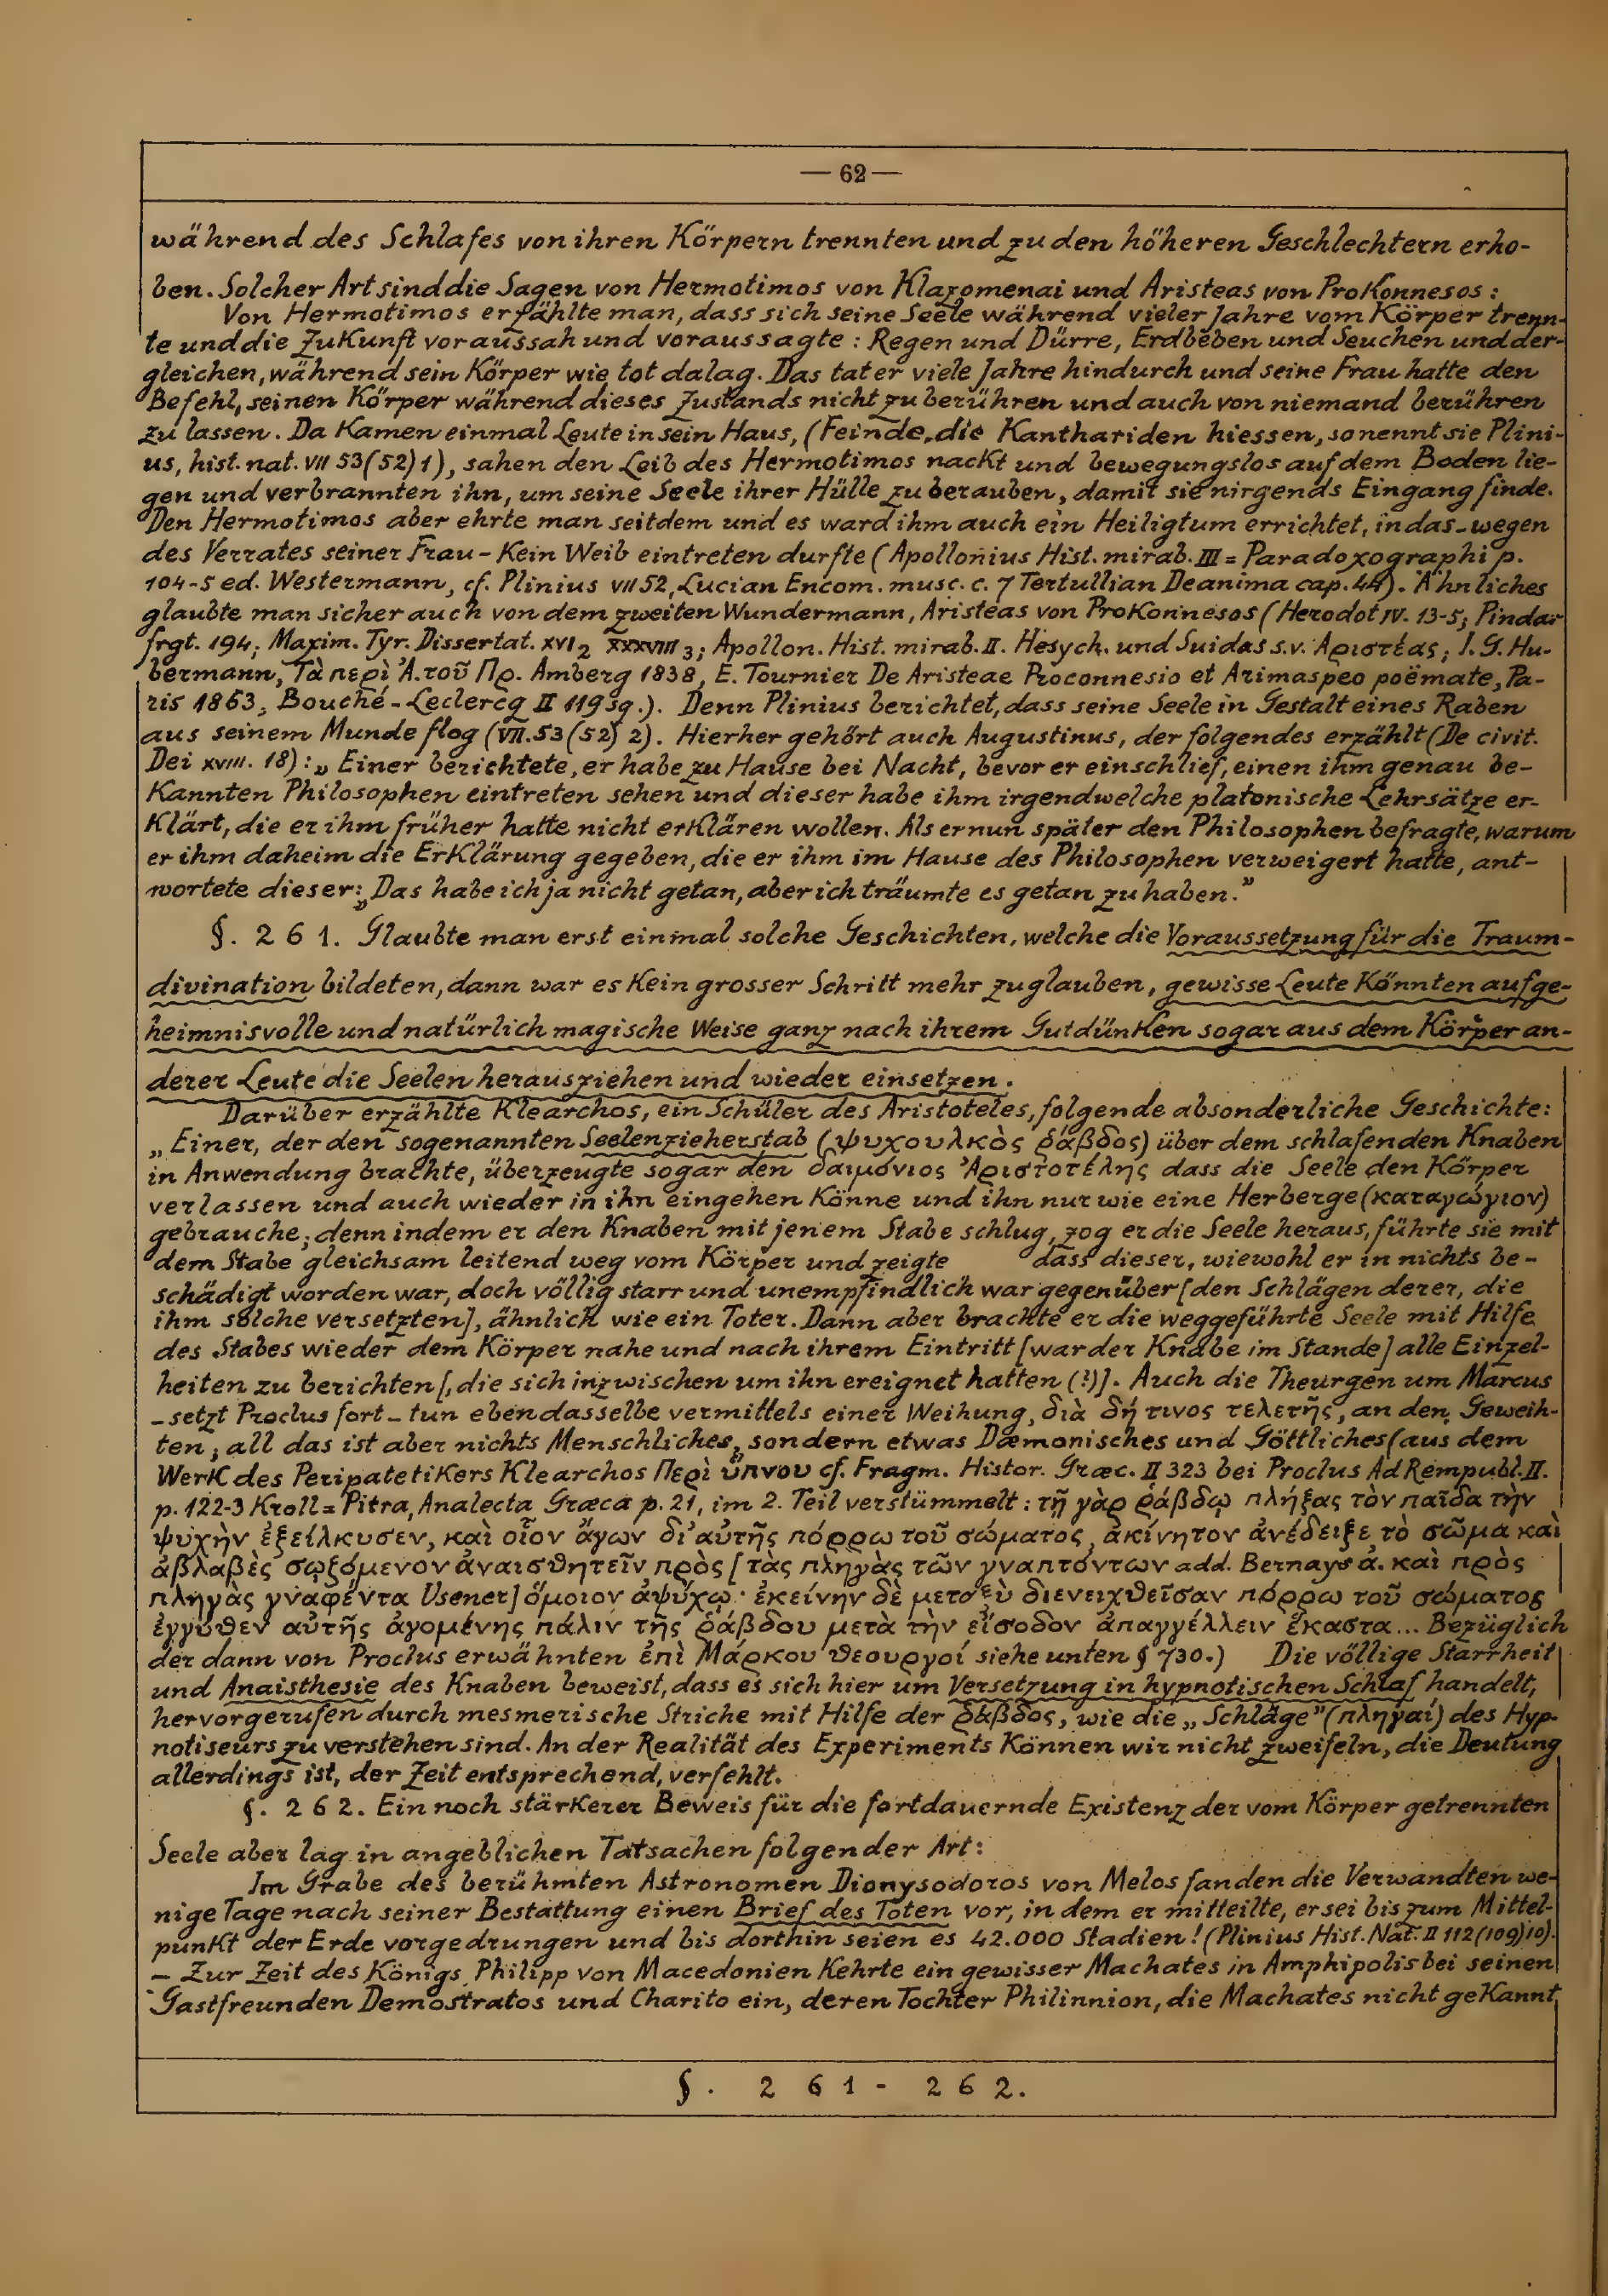 — 62 —
während des Schlafes von ihren Körpern trennten und zu den höheren Geschlechtern erho-
ben. Solcher Art sind die Sagen von Hermotimos von Klazomenai und Aristeas von Prokonnesos:
Von Hermotimos erzählte man, dass sich seine Seele während vieler Jahre vom Körper trenn-
te und die Zukunft voraussah und voraussagte: Regen und Dürre, Erdbeben und Seuchen und der-
gleichen, während sein Körper wie tot dalag. Das tat er viele Jahre hindurch und seine Frau hatte den
Befehl, seinen Körper während dieses Zustands nicht zu berühren und auch von niemand berühren
zu lassen. Da kamen einmal Leute in sein Haus, (Feinde, die Kanthariden hiessen, so nennt sie Plini-
us, hist. nat. VII 53 (52) 1), sahen den Leib des Hermotimos nackt und bewegungslos auf dem Boden lie-
gen und verbrannten ihn, um seine Seele ihrer Hülle zu berauben, damit sie nirgends Eingang finde.
Den Hermotimos aber ehrte man seitdem und es ward ihm auch ein Heiligtum errichtet, in das - wegen
des Verrates seiner Frau - kein Weib eintreten durfte (Apollonius Hist. mirab. III = Paradoxographi p.
104-5 ed. Westermann, cf. Plinius VII 52, Lucian Encom. musc. c. 7 Tertullian De anima cap. 44). Ähnliches
glaubte man sicher auch von dem zweiten Wundermann, Aristeas von Prokonnesos (Herodot IV. 13-5; Pindar
frgt. 194; Maxim. Tyr. Dissertat. XVI 2 XXXVIII 3; Apollon. Hist. mirab. II. Hesych. und Suidas s.v. Ἀριστέας; I. G. Hu-
bermann, Τὰ περὶ Ἀ. τοῦ Πρ. Amberg 1838, E. Tournier De Aristeae Proconnesio et Arimaspeo poëmate, Pa-
ris 1863, Bouché-Leclercq II 119 sq.). Denn Plinius berichtet, dass seine Seele in Gestalt eines Raben
aus seinem Munde flog (VII. 53 (52) 2). Hierher gehört auch Augustinus, der folgendes erzählt (De civit.
Dei XVIII. 18): „Einer berichtete, er habe zu Hause bei Nacht, bevor er einschlief, einen ihm genau be-
kannten Philosophen eintreten sehen und dieser habe ihm irgendwelche platonische Lehrsätze er-
klärt, die er ihm früher hatte nicht erklären wollen. Als er nun später den Philosophen befragte, warum
er ihm daheim die Erklärung gegeben, die er ihm im Hause des Philosophen verweigert hatte, ant-
wortete dieser: „Das habe ich ja nicht getan, aber ich träumte es getan zu haben."
§. 261. Glaubte man erst einmal solche Geschichten, welche die Voraussetzung für die Traum-
divination bildeten, dann war es kein grosser Schritt mehr zu glauben, gewisse Leute könnten auf ge-
heimnisvolle und natürlich magische Weise ganz nach ihrem Gutdünken sogar aus dem Körper an-
derer Leute die Seelen herausziehen und wieder einsetzen.
Darüber erzählte Klearchos, ein Schüler des Aristoteles, folgende absonderliche Geschichte:
„Einer, der den sogenannten Seelenzieherstab (ψυχουλκὸς ῥάβδος) über dem schlafenden Knaben
in Anwendung brachte, überzeugte sogar den δαιμόνιος Ἀριστοτέλης dass die Seele den Körper
verlassen und auch wieder in ihn eingehen könne und ihn nur wie eine Herberge (καταγώγιον)
gebrauche; denn indem er den Knaben mit jenem Stabe schlug, zog er die Seele heraus, führte sie mit
dem Stabe gleichsam leitend weg vom Körper und zeigte dass dieser, wiewohl er in nichts be-
schädigt worden war, doch völlig starr und unempfindlich war gegenüber [den Schlägen derer, die
ihm solche versetzten], ähnlich wie ein Toter. Dann aber brachte er die weggeführte Seele mit Hilfe
des Stabes wieder dem Körper nahe und nach ihrem Eintritt [war der Knabe im Stande] alle Einzel-
heiten zu berichten [, die sich inzwischen um ihn ereignet hatten (?)]. Auch die Theurgen um Marcus
- setzt Proclus fort - tun ebendasselbe vermittels einer Weihung, διὰ δή τινος τελετῆς, an den Geweih-
ten; all das ist aber nichts Menschliches, sondern etwas Dæmonisches und Göttliches (aus dem
Werk des Peripatetikers Klearchos Περὶ ὕπνου cf. Fragm. Histor. Græc. II 323 bei Proclus Ad Rempubl. II.
p. 122-3 Kroll = Pitra, Analecta Græca p. 21, im 2. Teil verstümmelt: τῇ γὰρ ῥάβδῳ πλήξας τὸν παῖδα τὴν
ψυχὴν ἐξείλκυσεν, καὶ οἷον ἄγων δι' αὐτῆς πόρρω τοῦ σώματος, ἀκίνητον ἀνέδειξε τὸ σῶμα καὶ
ἀβλαβὲς σῳζόμενον ἀναισθητεῖν πρὸς [τὰς πληγὰς τῶν γναπτόντων add. Bernays ἀ. καὶ πρὸς
πληγὰς γναφέντα Usener] ὅμοιον ἀψύχῳ· ἐκείνην δὲ μεταξὺ διενειχθεῖσαν πόρρω τοῦ σώματος
ἐγγύθεν αὐτῆς ἀγομένης πάλιν τῆς ῥάβδου μετὰ τὴν εἴσοδον ἀπαγγέλλειν ἕκαστα... Bezüglich
der dann von Proclus erwähnten ἐπὶ Μάρκου θεουργοί siehe unten § 730.) Die völlige Starrheit
und Anaisthesie des Knaben beweist, dass es sich hier um Versetzung in hypnotischen Schlaf handelt,
hervorgerufen durch mesmerische Striche mit Hilfe der ῥάβδος, wie die „Schläge" (πληγαί) des Hyp-
notiseurs zu verstehen sind. An der Realität des Experiments können wir nicht zweifeln, die Deutung
allerdings ist, der Zeit entsprechend, verfehlt.
§. 262. Ein noch stärkerer Beweis für die fortdauernde Existenz der vom Körper getrennten
Seele aber lag in angeblichen Tatsachen folgender Art:
Im Grabe des berühmten Astronomen Dionysodoros von Melos fanden die Verwandten we-
nige Tage nach seiner Bestattung einen Brief des Toten vor, in dem er mitteilte, er sei bis zum Mittel-
punkt der Erde vorgedrungen und bis dorthin seien es 42.000 Stadien! (Plinius Hist. Nat. II 112 (109) 10).
- Zur Zeit des Königs Philipp von Macedonien kehrte ein gewisser Machates in Amphipolis bei seinen
Gastfreunden Demostratos und Charito ein, deren Tochter Philinnion, die Machates nicht gekannt
§. 261 - 262.